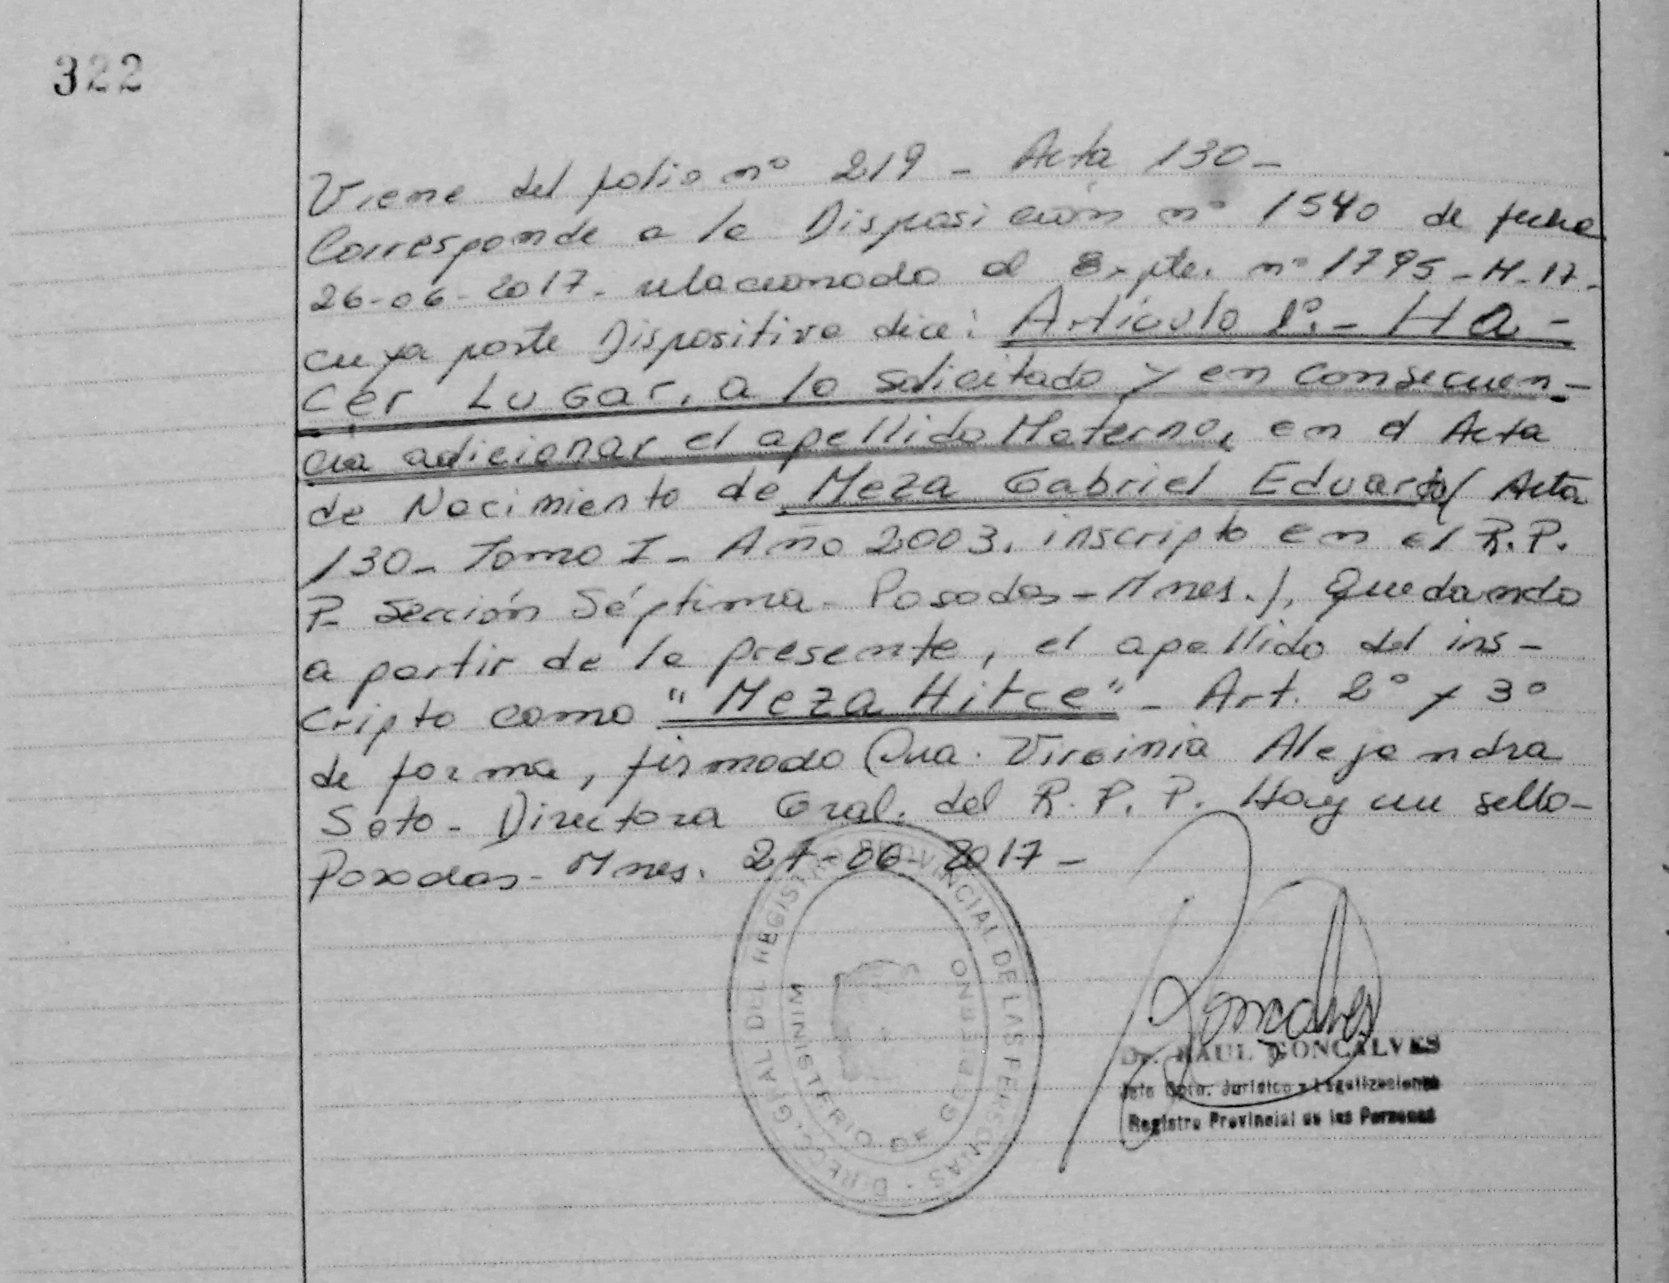 322
Viene del folio nº 219 - Acta 130 -
Corresponde a la Disposición nº 1540 de fecha
26-06-2017- relacionado al Expte. nº 1795-M-17-
cuya parte Dispositiva dice: Artículo 1º.- Ha-
cer Lugar, a lo solicitado y en consecuen-
cia adicionar el apellido Materno, en el Acta
de Nacimiento de Meza Gabriel Eduardo (Acta
130- Tomo I- Año 2003. inscripto en el R.P.
P- Sección Séptima- Posadas- Mnes.), Quedando
a partir de la presente, el apellido del ins-
cripto como "Meza Hitce" - Art. 2º y 3º
de forma, firmado Dra. Virginia Alejandra
Soto- Directora Gral. del R.P.P. Hay un sello-
Posadas- Mnes. 27-06-2017-
DIRECC. GRAL. DEL REGISTRO PROVINCIAL DE LAS PERSONAS
MINISTERIO DE GOBIERNO
Goncalves
Dr. RAUL GONCALVES
Jefe Dpto. Jurídico y Legalizaciones
Registro Provincial de las Personas